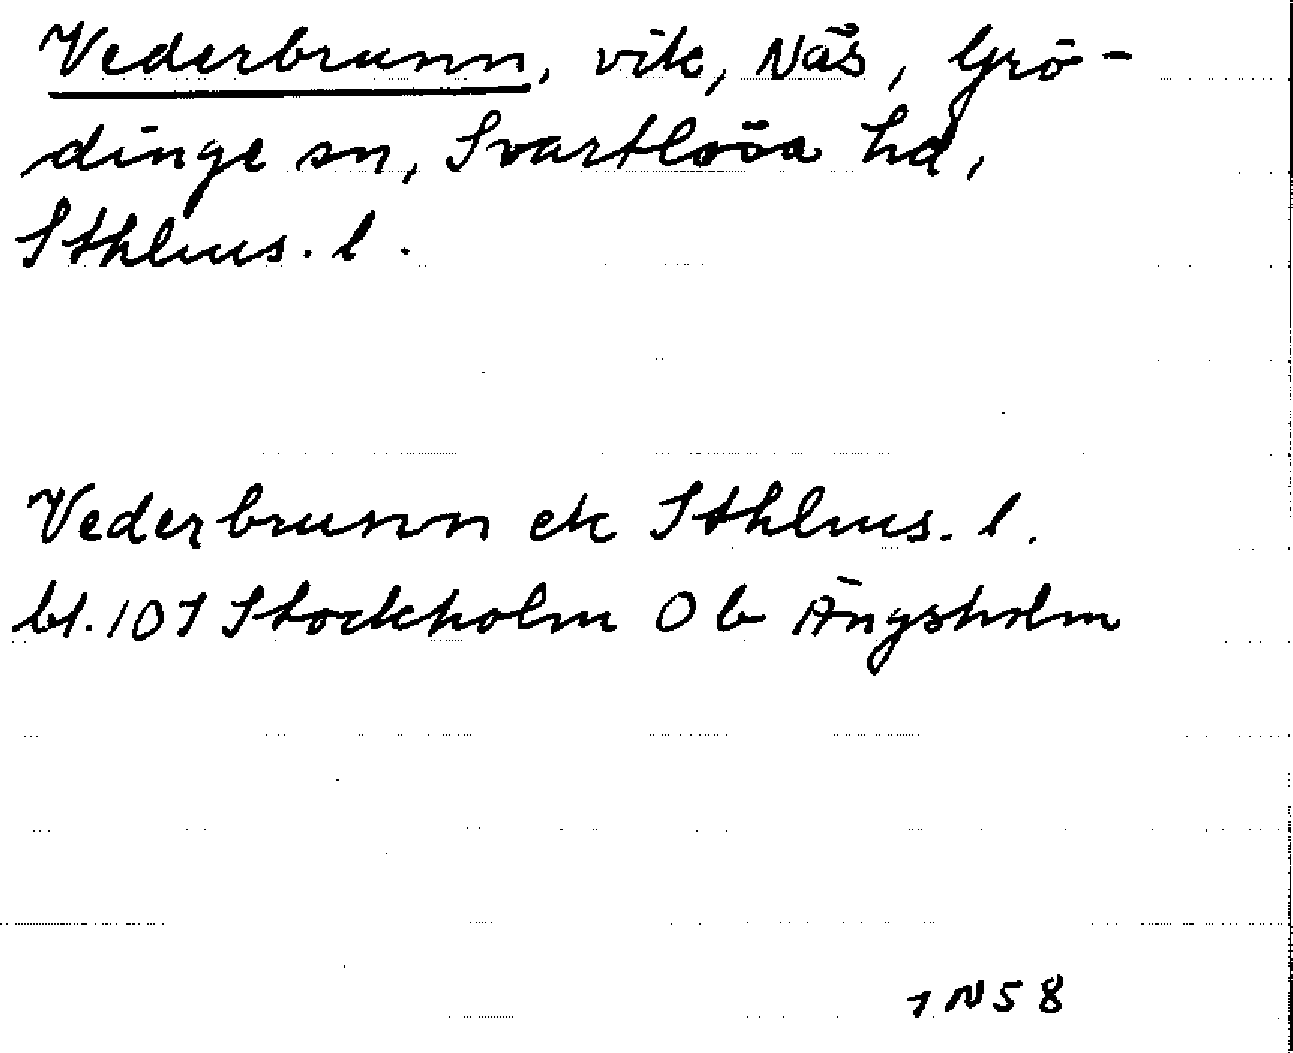 Vederbrunn, vik, Näs, Grö-
dinge sn, Svartlösa hd,
Sthlms. l.
Vederbrunn ek Sthlms. l.
bl. 10I Stockholm O b Ängsholm
IN58